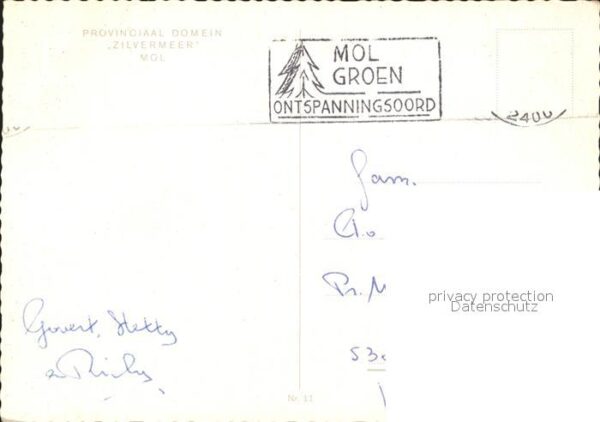 PROVINCIAAL DOMEIN
„ZILVERMEER"
MOL
MOL
GROEN
ONTSPANNINGSOORD
2400
Fam.
Pr. M
53
Govert, Hetty
Nr. 11
privacy protection
Datenschutz